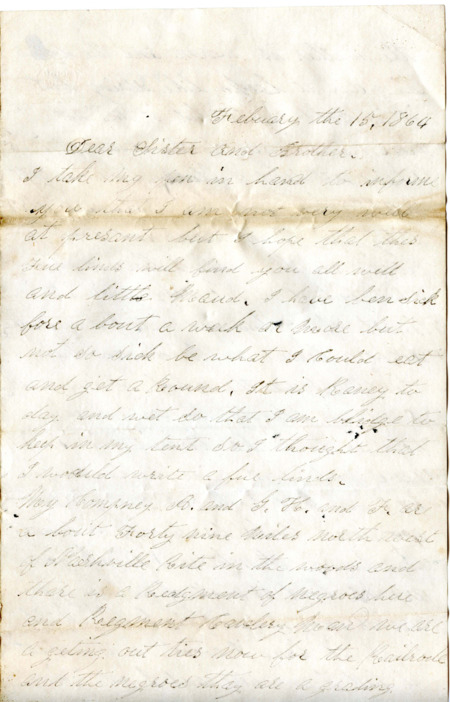 Febuary the 15, 1864
Dear Sister and Brother.
I take my pen in hand to informe
you that I am not very well
at present but I hope that this
fue lines will find you all well
and little Maud. I have ben sick
fore a bout a weak or more but
not so sick be what I Could eat
and get a round. It is Raney to
day and wet so that I am blidge to
keep in my tent so I thought that
I would write a fue lines.
My Compney A. and G. H. and F. are
a bout Forty nine Miles north west
of Nashville Citte in the woods and
there is a Reagment of negroes here
and Regiment Cavelry near we are
a geting out ties now for the Railrode
and the negroes thay are a grading